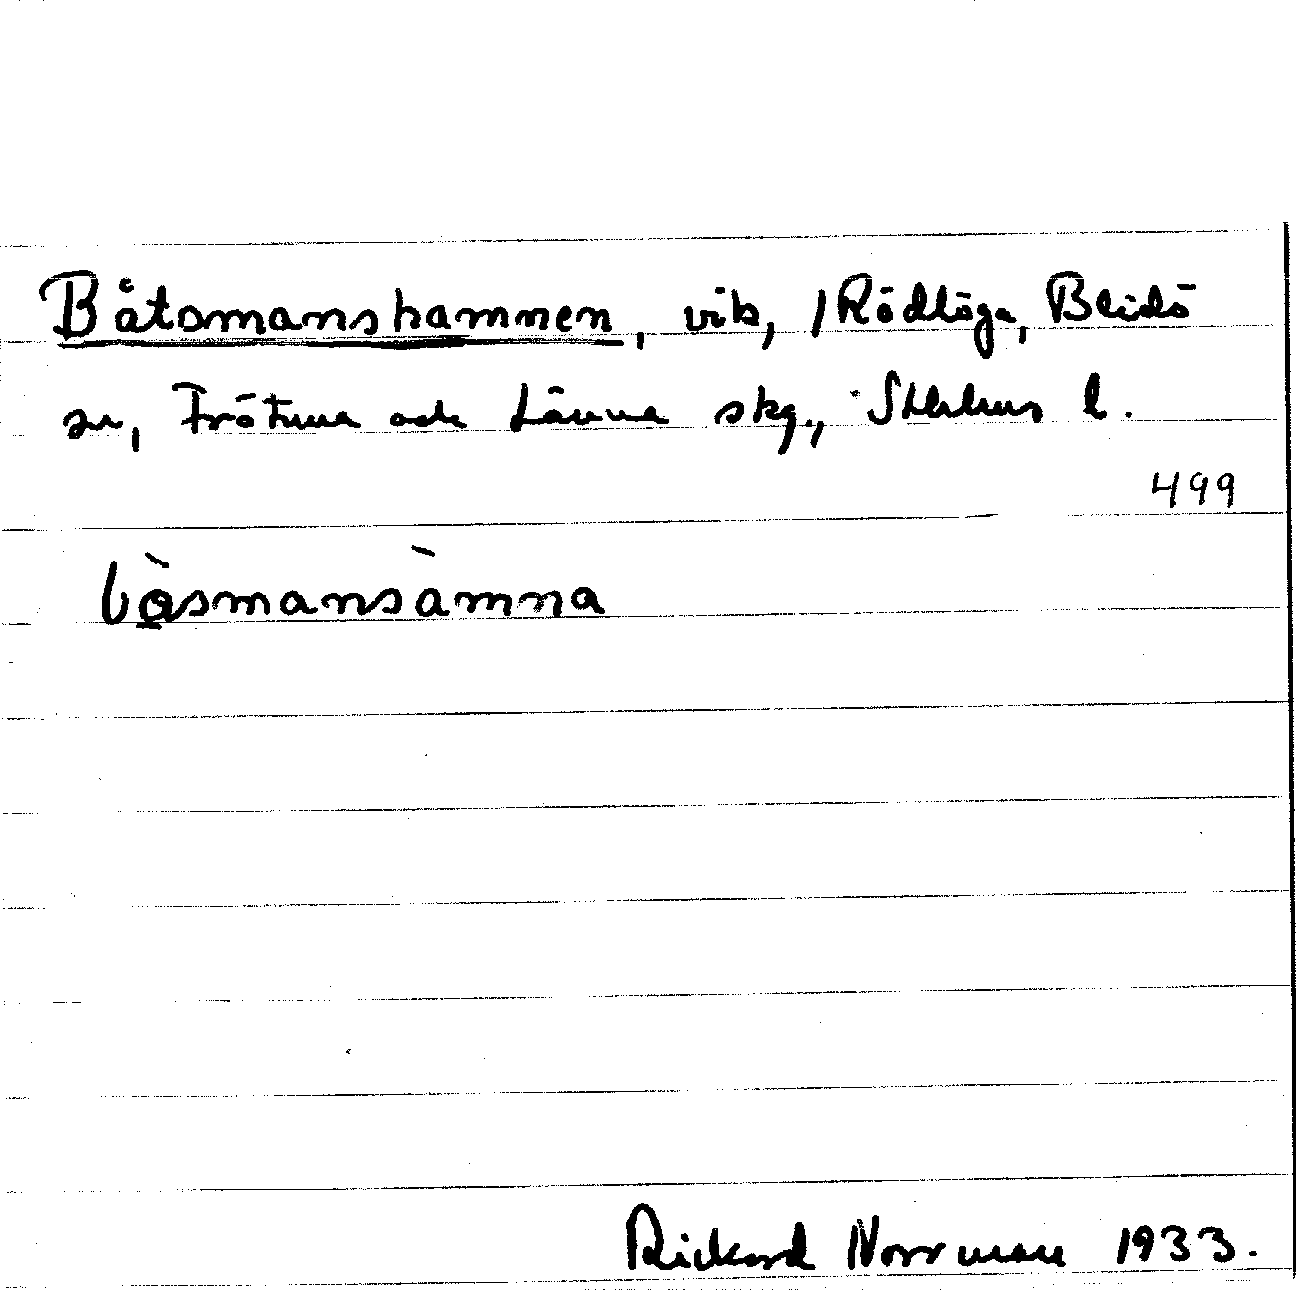 Båtsmanshamnen, vik, /Rödlöga, Blidö
sn, Frötuna och Länna skg., Sthlms l.
499
bò̲smansàmna
Rickard Norrman 1933.